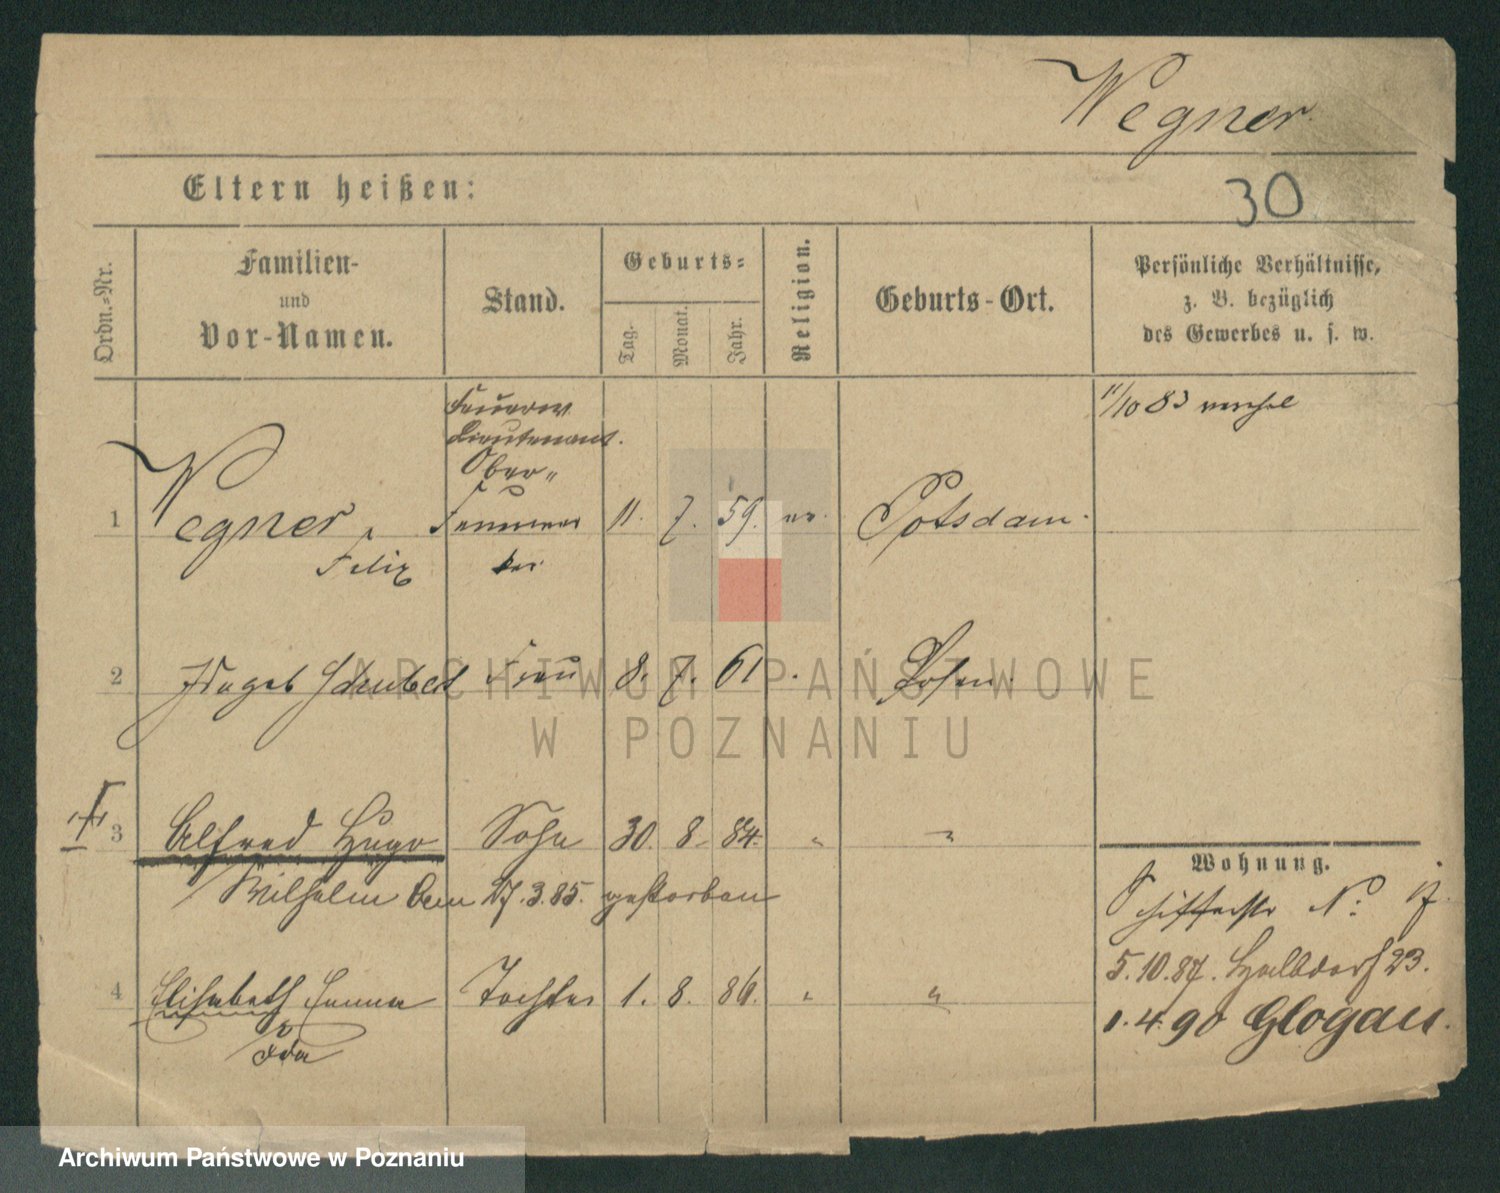 Wegner
Eltern heißen:
30
Ordn.-Nr.
Familien-
und
Vor-Namen.
Stand.
Geburts-
Tag.
Monat.
Jahr.
Religion.
Geburts-Ort.
Persönliche Verhältnisse,
z. B. bezüglich
des Gewerbes u. s. w.
11/10 83
Feuerw
Lieutenant.
Ober-
1 Wegner, 11. 7. 59. ev. Potsdam.
Felix
2 Schubert Frau 8. 7. 61 Posen.
3 Alfred Hugo Sohn 30. 8. 84. "
Wilhelm den 27.3.85. gestorben
Wohnung.
Schifferstr No. 17
5.10.87. Halbdorf 23.
4 Elisabeth Emma Tochter 1. 8. 86. "
1.4.90 Glogau.
Ida
ARCHIWUM PAŃSTWOWE
W POZNANIU
Archiwum Państwowe w Poznaniu